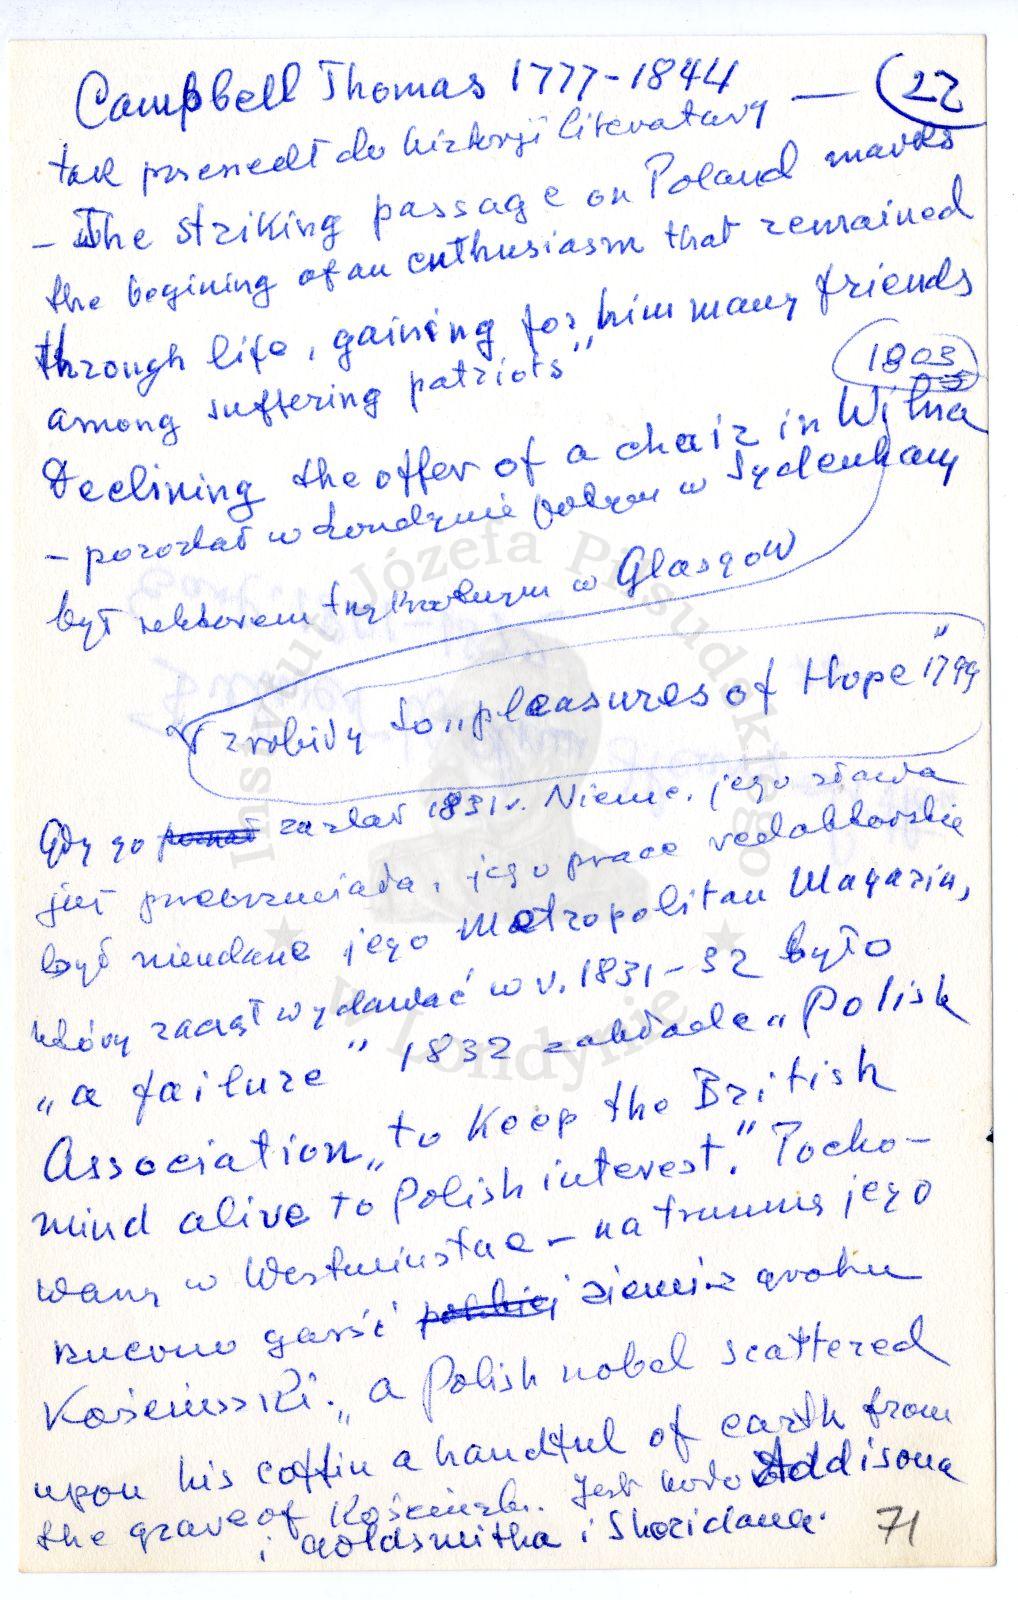 Campbell Thomas 1777-1844 — (22
tak przeszedł do historji literatury
- The striking passage on Poland marks
the begining of an enthusiasm that remained
through life, gaining for him many friends
among suffering patriots"
1803
Declining the offer of a chair in Wilna
- pozostał w Londynie potem w Sydenham
był rektorem trzykrotnym w Glasgow
zrobiły to „pleasures of Hope" 1799
Gdy go poznał zastał 1831 r. Niemc. jego sława
już przebrzmiała, jego prace redaktorskie
były nieudane jego Metropolitan Magazin,
który zaczął wydawać w r. 1831-32 było
„a failure" 1832 zakłada „Polish
Association „to keep the British
mind alive to Polish interest." Pocho-
wany w Westminstae - na trumnę jego
rzucono garść polskiej ziemi z grobu
Kościuszki. „a Polish nobel scattered
upon his coffin a handful of earth from
the grave of Kościuszk. Jest koło Addisona
i Goldsmitha i Sheridana.
71
Instytut Józefa Piłsudskiego
w Londynie